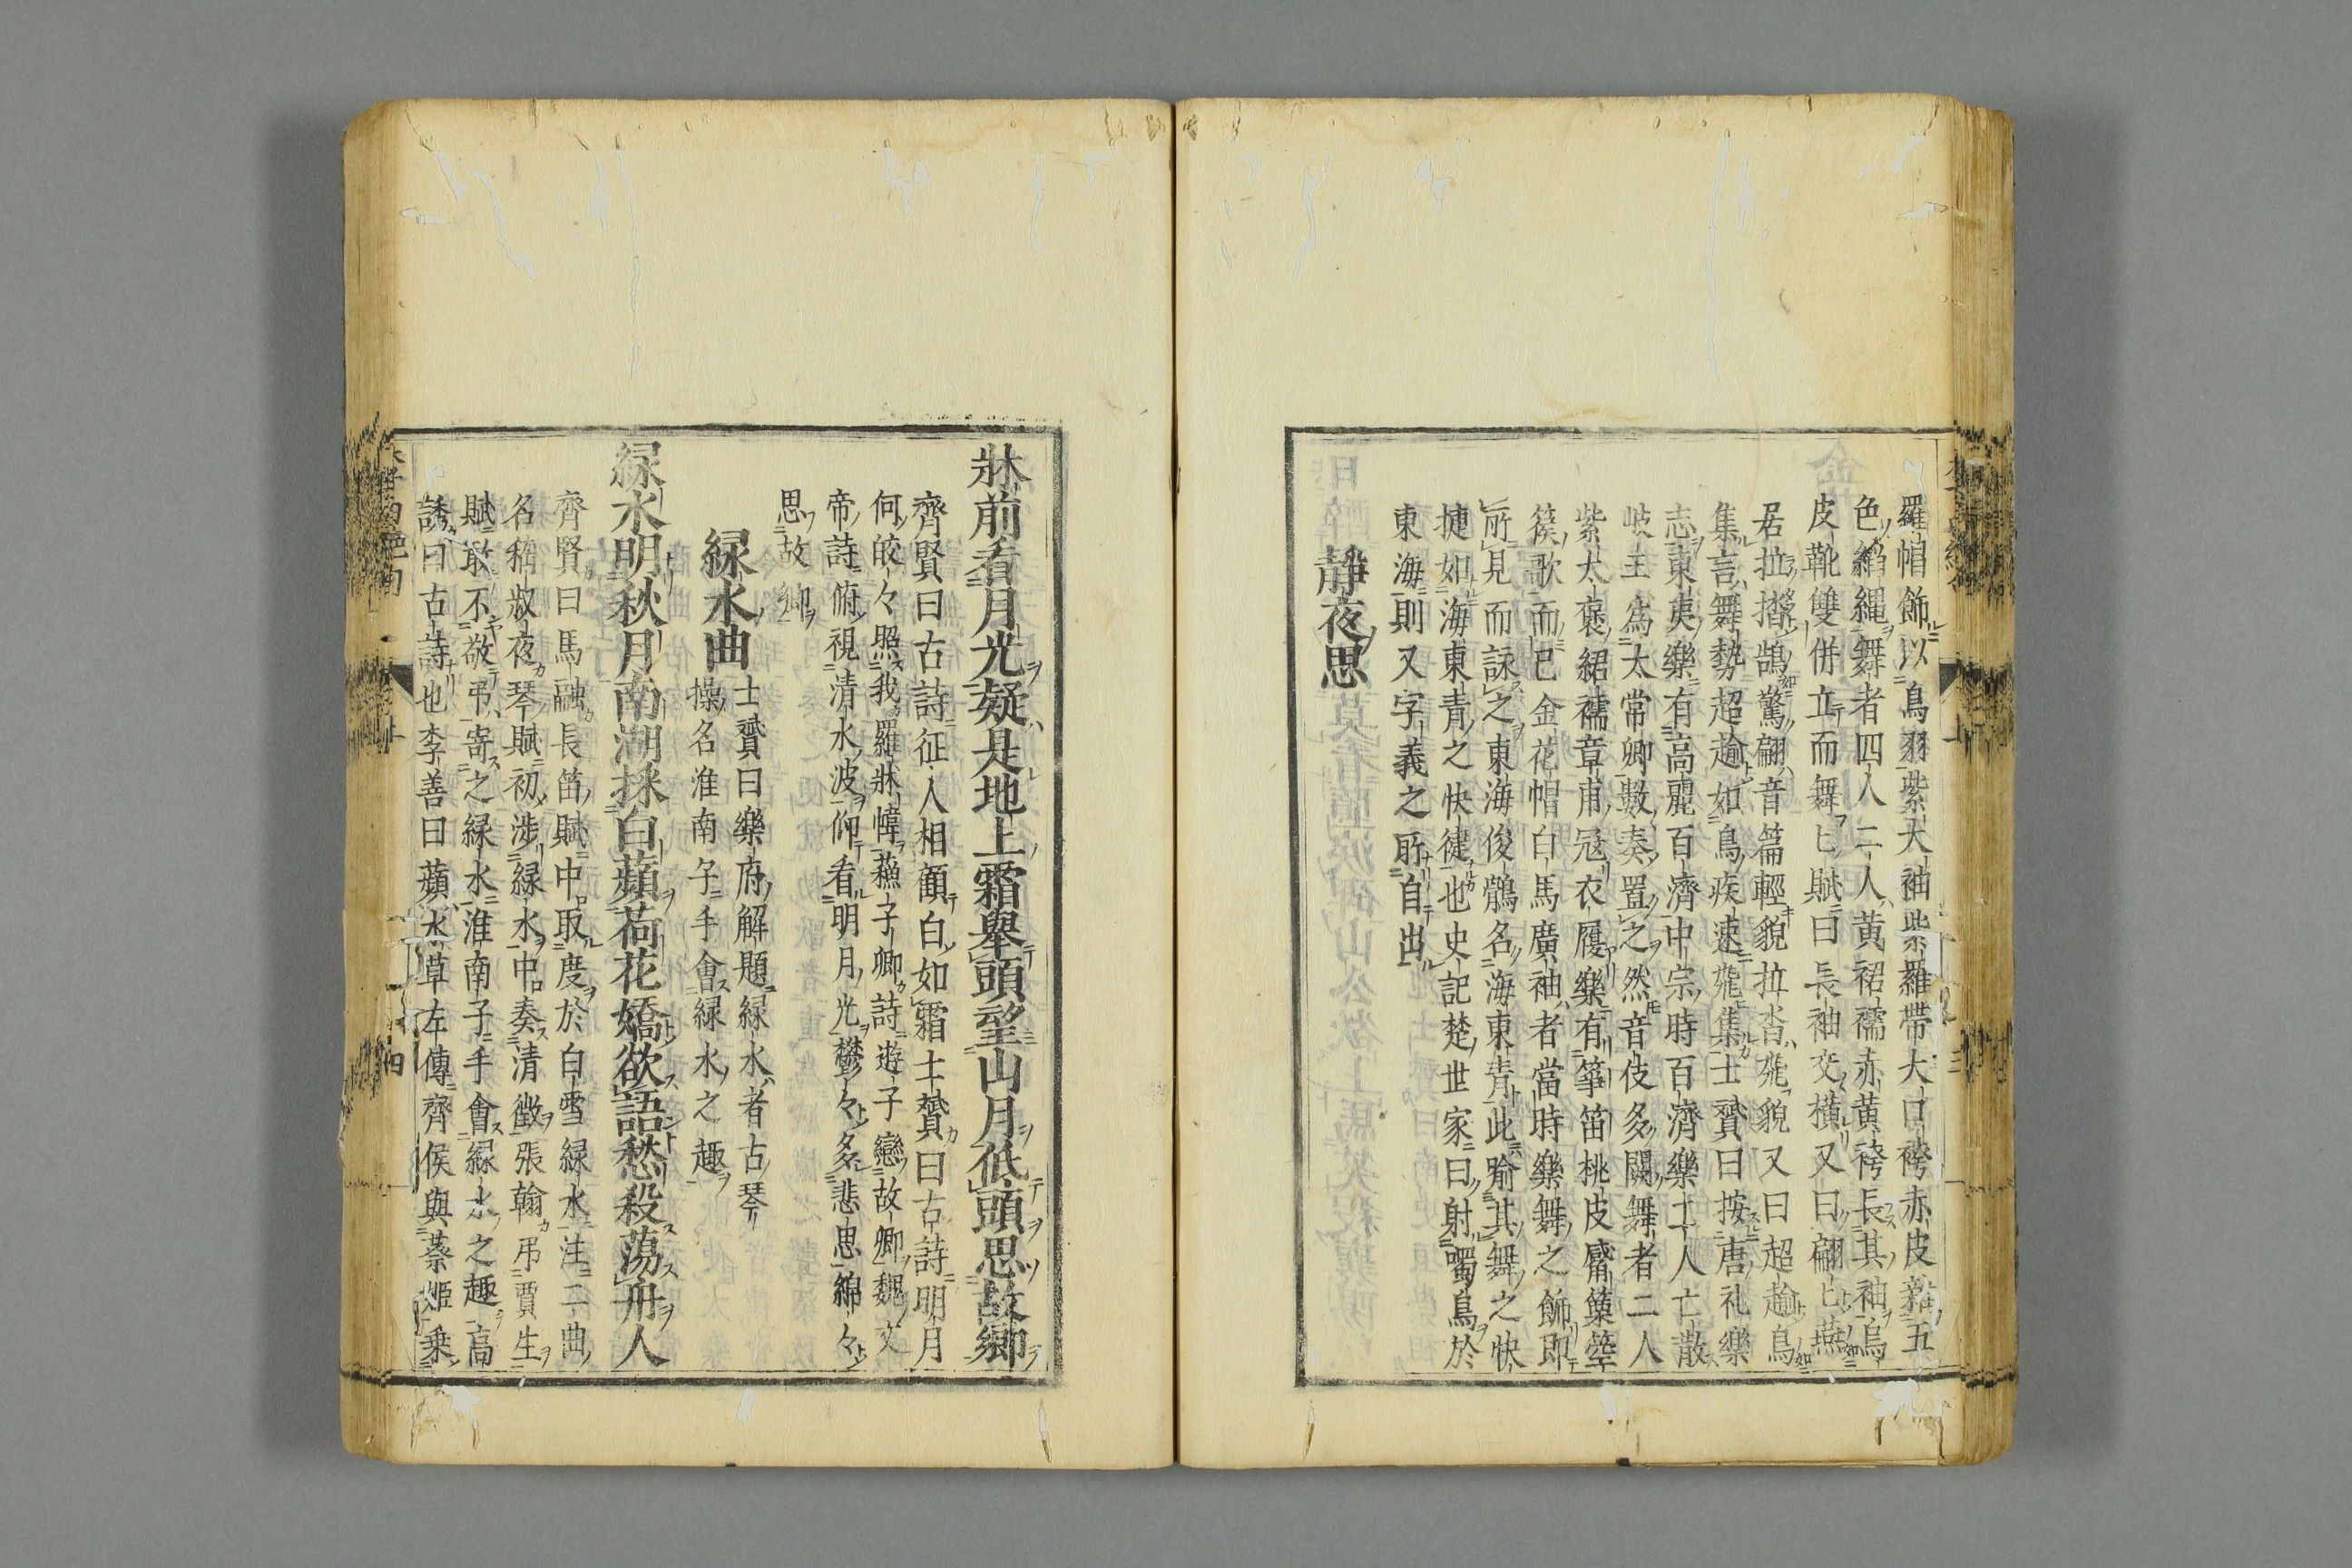 羅帽飾以鳥羽紫大袖紫羅帶大口袴赤皮鞾五
色縚縄舞者四人二人黄裙襦赤黄袴長其袖烏
皮靴雙併立而舞匕賦曰長袖交横又曰翩匕燕
居拉㧺鵠驚翩音篇輕貌拉㳫飛貌又曰超踰鳥
集言舞勢超踰如鳥疾速飛集士贇曰按唐礼樂
志東夷樂有高麗百濟中宗時百濟樂工人亡散
岐王為太常卿數奏置之然音伎多闕舞者二人
紫大褎裙襦章甫冠衣履樂有箏笛桃皮觱篥箜
篌歌而已金花帽白馬廣袖者當時樂舞之飾即
所見而詠之東海俊鶻名海東青此喻其舞之快
捷如海東青之快徤也史記楚世家曰射噣鳥於
東海則又字義之所自出
静夜思
牀前看月光疑是地上霜舉頭望山月低頭思故郷
齊賢曰古詩征人相顧白如霜士贇曰古詩明月
何皎々照我羅牀幃蘓子卿詩遊子戀故郷魏文
帝詩俯視清水波仰看明月光鬱々多悲思綿々
思故郷
緑水曲
士贇曰樂府解題緑水者古琴
操名淮南子手會緑水之趣
緑水明秋月南湖採白蘋荷花嬌欲語愁殺蕩舟人
齊賢曰馬融長笛賦中取度於白雪緑水注二曲
名嵇叔夜琴賦初渉緑水中奏清徴張翰弔賈生
賦敢不敬弔寄之緑水淮南子手會緑水之趣高
誘曰古詩也李善曰蘋水草左傳齊侯與蔡姬乗